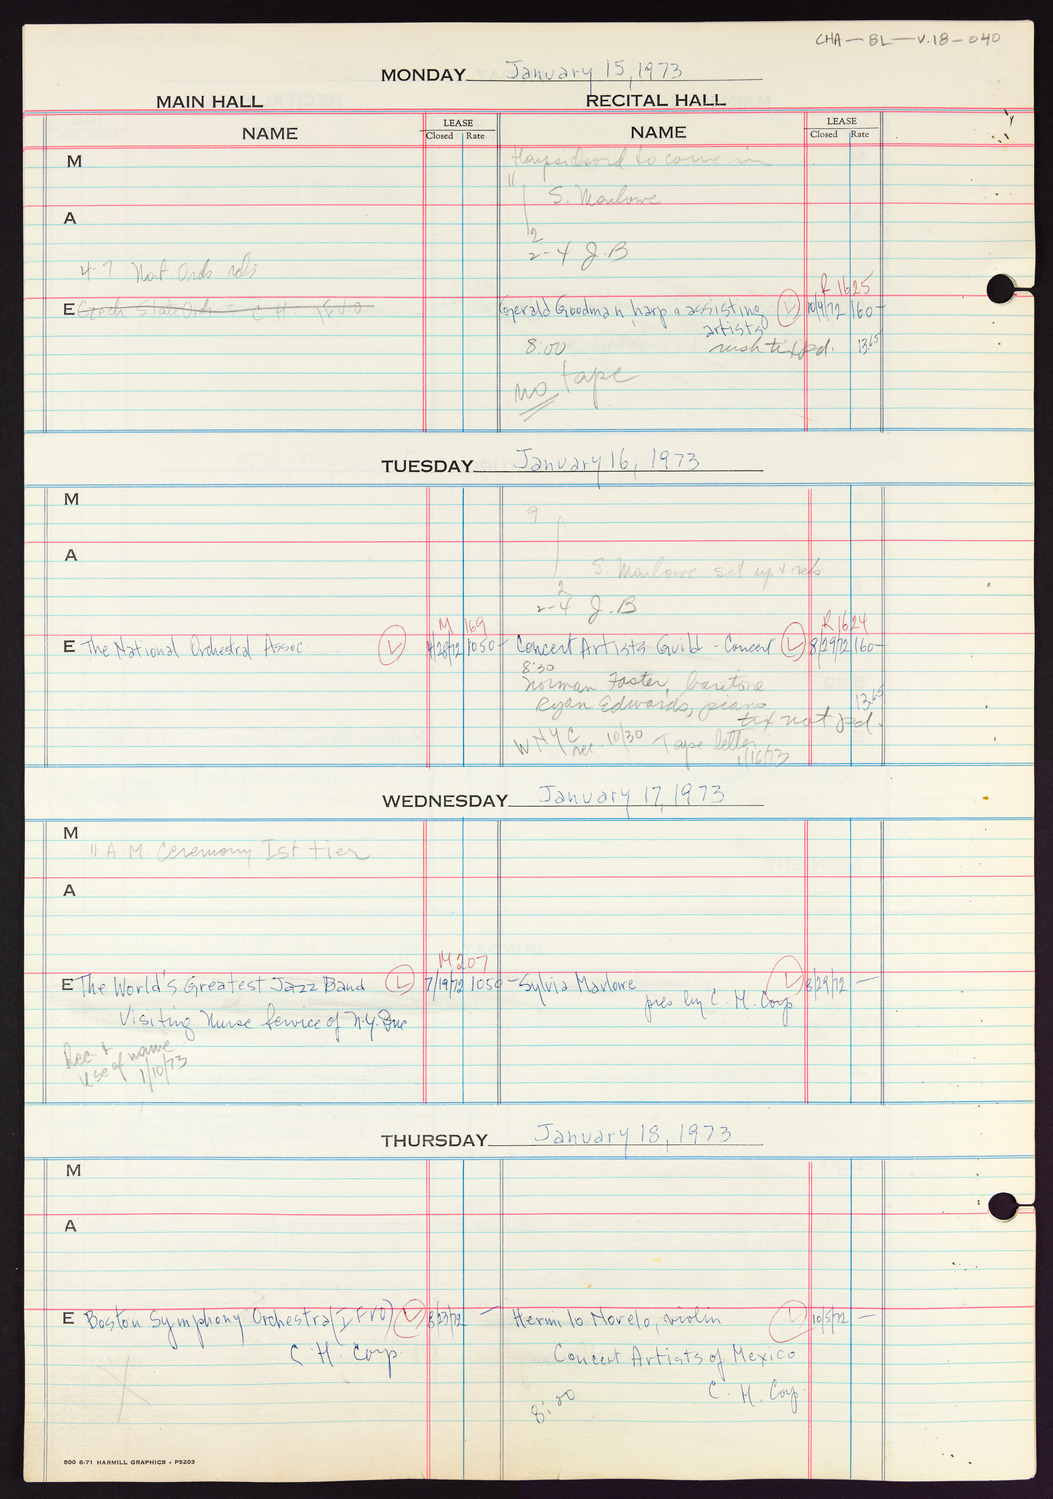 CHA-BL-V.18-040
MONDAY January 15, 1973
MAIN HALL
RECITAL HALL
NAME
LEASE
Closed Rate
NAME
LEASE
Closed Rate
M
Harpsichord to come in
11
S. Marlowe
A
2
2-4 J.B
4-7 Nat. Orch reh
R 1625
E Czech State Orch - C. H. (EVO
Gerald Goodman, harp & assisting L 10/4/72 160-
artists
8:00
rush tix pd. 13.65
no tape
TUESDAY January 16, 1973
M
9
A
S. Marlowe set up & reh.
2
2-4 J.B
M 169
R 1624
E The National Orchestral Assoc. L 4/28/72 1050-
Concert Artists Guild - Concert L 8/29/72 160-
8:30
Norman Foster, baritone
Ryan Edwards, piano 13.65
tix not pd.
WNYC rec. 10/30 Tape letter
1/16/73
WEDNESDAY January 17, 1973
M
11 A M. Ceremony Ist tier
A
M 207
E The World's Greatest Jazz Band L 7/19/72 1050-
Sylvia Marlowe L 8/29/72 —
pres by C. H. Corp
Visiting Nurse Service of N.Y. Inc
Rec. &
use of name
1/10/73
THURSDAY January 18, 1973
M
A
E Boston Symphony Orchestra (I EVO) L 8/23/72 —
Hermilo Novelo, violin L 10/5/72 —
C H. Corp.
Concert Artists of Mexico
C. H. Corp.
8:00
500 6-71 HARMILL GRAPHICS - P5203